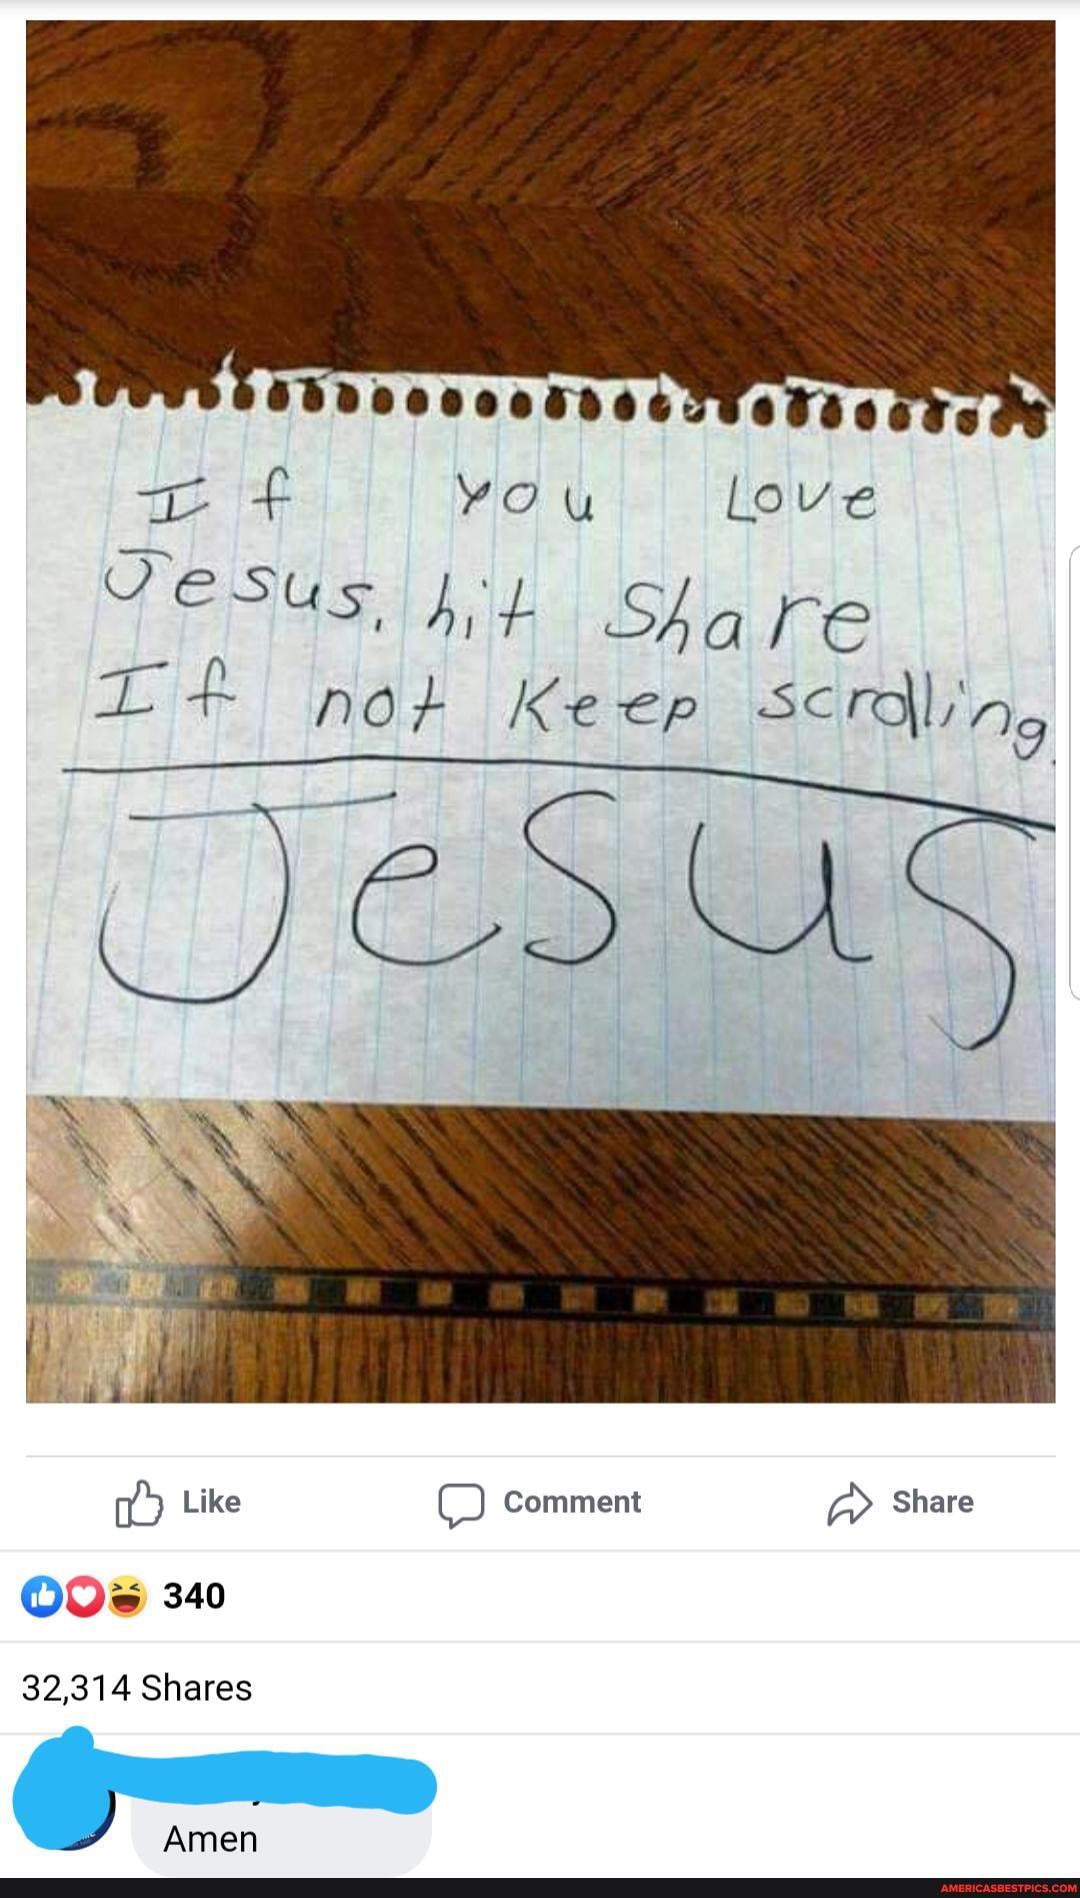 If you Love
Jesus, hit Share
If not Keep scrolling.
Jesus
Like Comment Share
340
32,314 Shares
Amen
AMERICASBESTPICS.COM